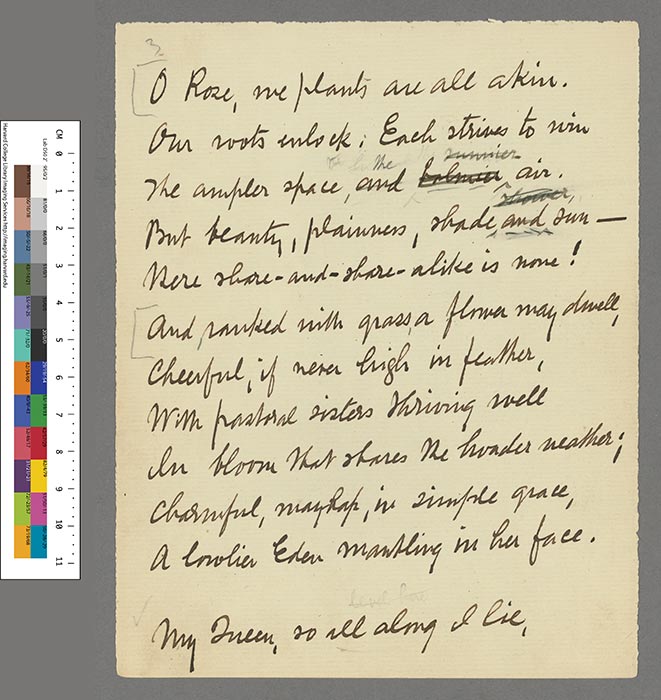 3
O Rose, we plants are all akin.
Our roots enlock; Each strives to win
the summer
The ampler space, and balmier air.
shower,
But beauty, plainness, shade and sun —
Here share-and-share-alike is none!
And, ranked with grass a flower may dwell,
Cheerful, if never high in feather,
With pastoral sisters thriving well
In bloom that shares the broader weather;
Charmful, mayhap, in simple grace,
A lowlier Eden mantling in her face.
My Queen, so all along I lie,
CM 0 1 2 3 4 5 6 7 8 9 10 11
Harvard College Library Imaging Services http://imaging.harvard.edu